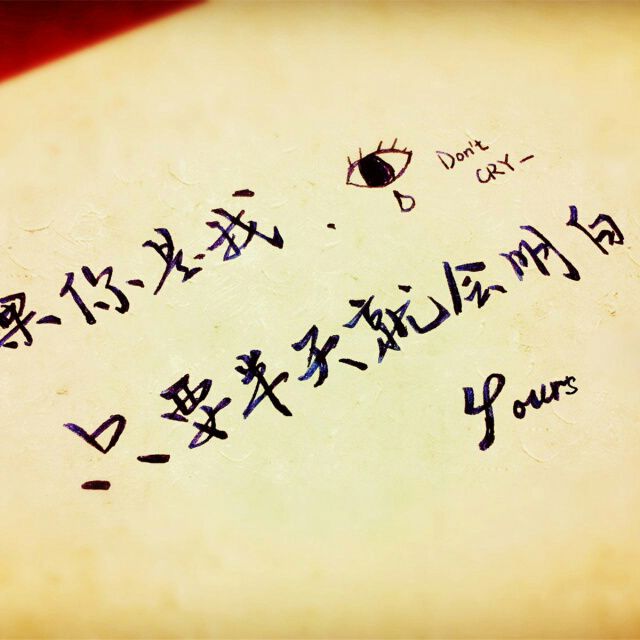 Don't
CRY-
果你是我.
只要半天就会明白
Yours